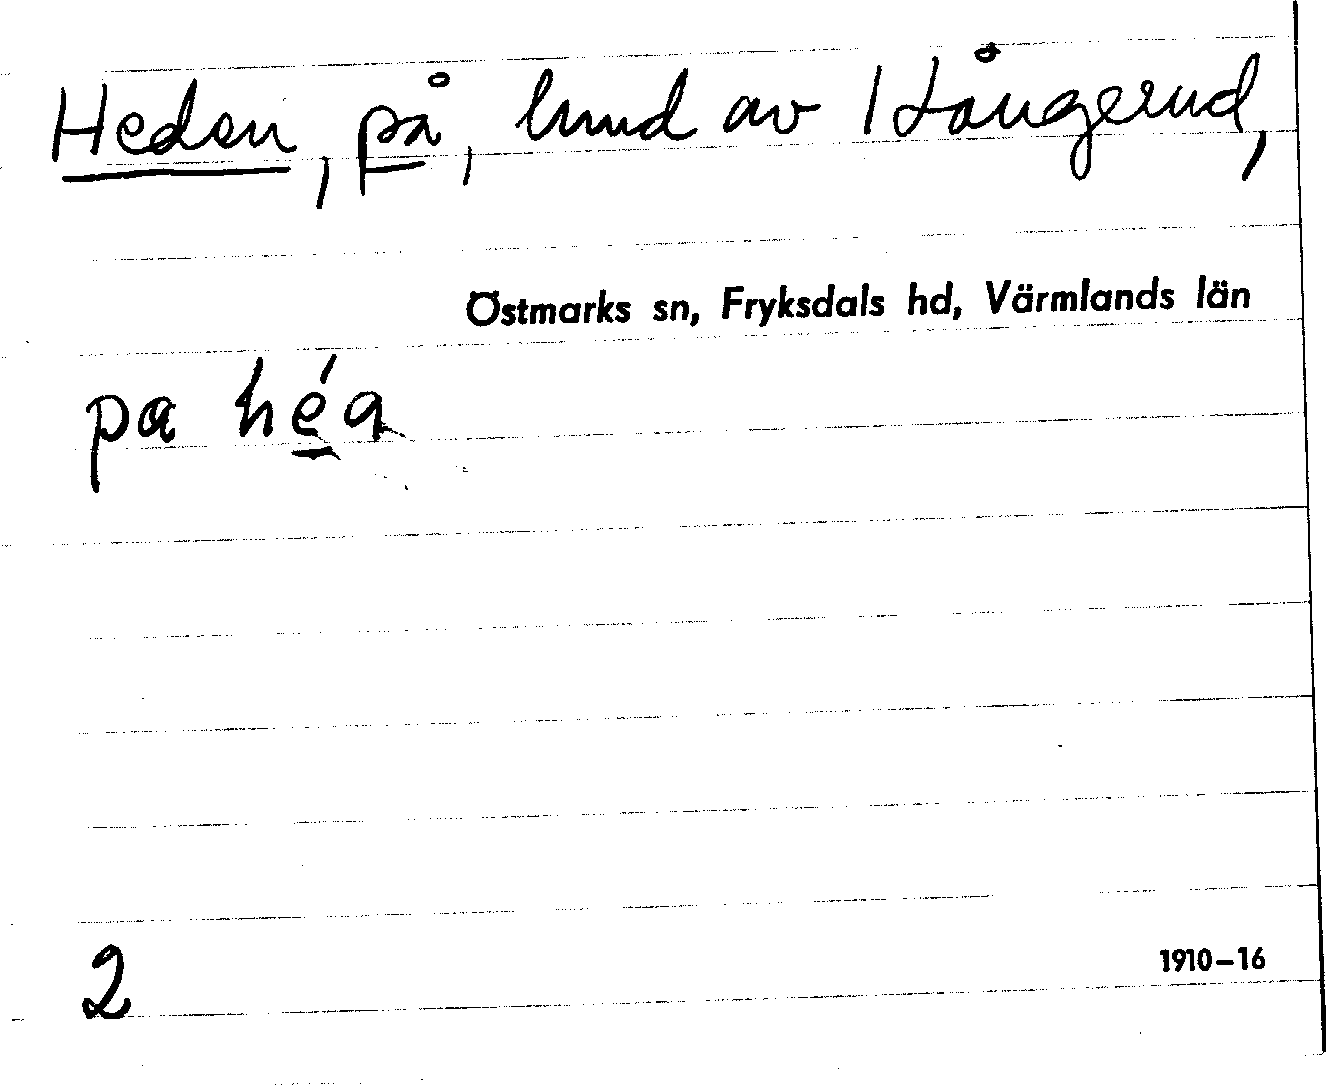 Heden, på, hmd av 1 Långerud,
Östmarks sn, Fryksdals hd, Värmlands län
pa hé̱a
2
1910–16